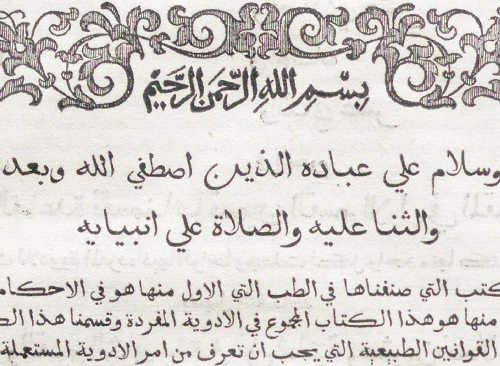 بِسْمِ اللهِ الرَّحْمَنِ الرَّحَيْمِ
وسلام علي عباده الذين اصطفي الله وبعد
والثنا عليه والصلاة علي انبيايه
كتب التي صنفناها في الطب التي الاول منها هو في الاحكام
منها هو هذا الكتاب المجموع في الادوية المفردة وقسمنا هذا
القوانين الطبيعية التي يجب ان تعرف من امر الادوية المستعملة